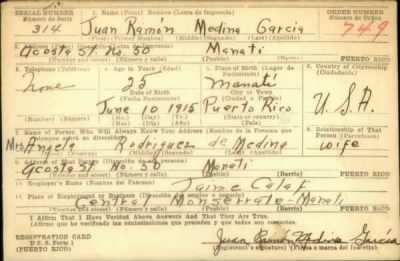 SERIAL NUMBER 1. Name (Print) Nombre (Letra de Imprenta) ORDER NUMBER
Número de Serie Número de Orden
314 Juan Ramón Medina Garcia 749
(First) (Primer) (Middle) (Segundo) (Last) (Apellido)
Acosta St No 30 Manati
(Number and street) (Número y calle) (Pueblo) (Barrio) PUERTO RICO
3. Telephone (Teléfono) 4. Age in Years (Edad) 5. Place of Birth (Lugar de Nacimiento) 6. Country of Citizenship (Ciudadanía)
None 25 Manatí
Date of Birth City or Town
(Fecha Nacimiento) (Ciudad o Pueblo)
June 10 1915 Puerto Rico U.S.A.
State or Country
7. Name of Person Who Will Always Know Your Address (Nombre de la Persona que 8. Relationship of That Person (Parentesco)
Mrs. Angela Rodriguez de Medina wife
(Middle) (Segundo) (Last) (Apellido)
9. Address of That Person (Dirección de
Acosta St. No. 30 Manati
(Number and street) (Número y calle) (Pueblo) (Barrio) PUERTO RICO
10. Employer's Name (Nombre del Patrono)
Jaime Calaf
11. Place of Employment or Business (Dirección
Central Monserrate - Manati
(Number and street) (Número y calle) (Pueblo) (Barrio) PUERTO RICO
I Affirm That I Have Verified Above Answers And That They Are True.
(Afirmo que he verificado las contestaciones que preceden y que todas son ciertas.)
REGISTRATION CARD
D. S. S. Form 1
(PUERTO RICO)
Juan Ramón Medina García
(Registrant's signature) (Firma o marca del inscrito)